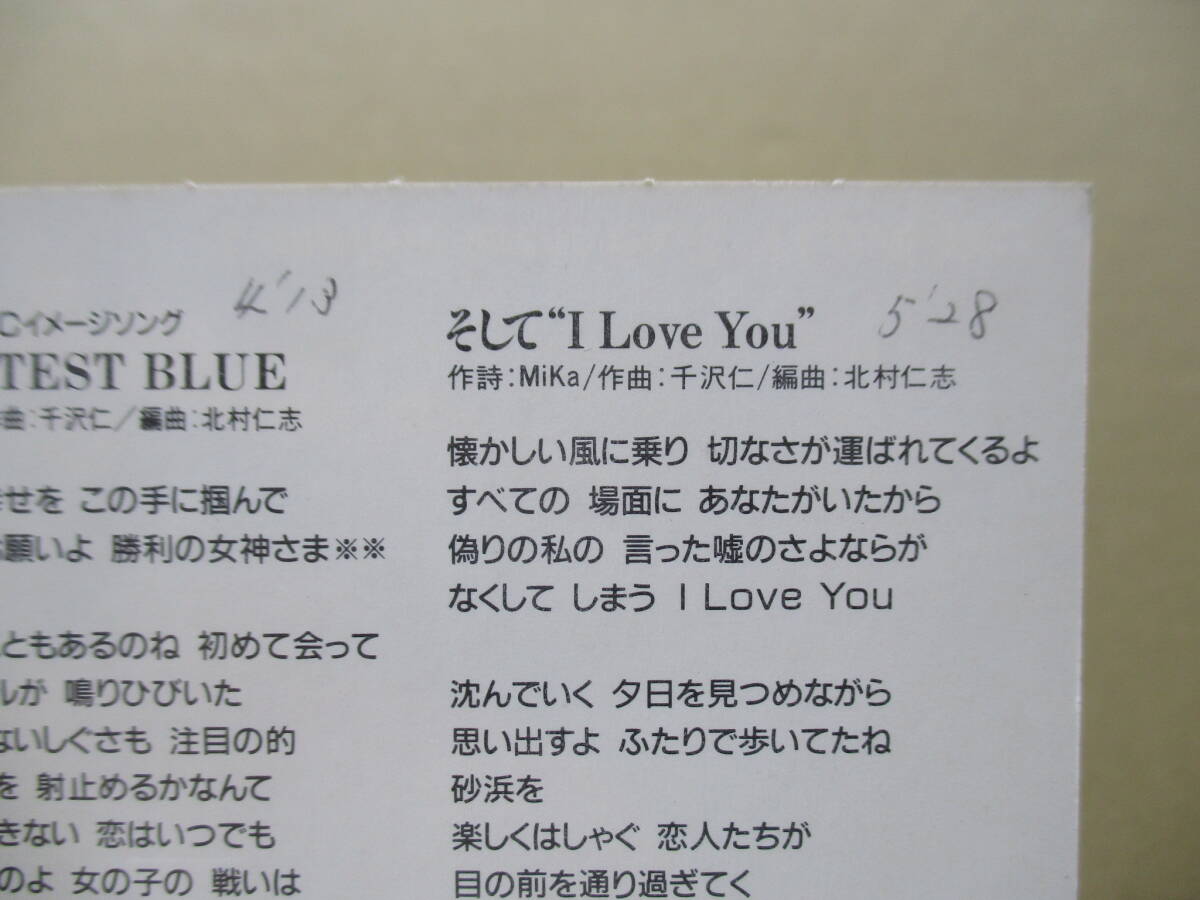 4'13
Cイメージソング
TEST BLUE
曲:千沢仁/編曲:北村仁志
せを この手に掴んで
願いよ 勝利の女神さま※※
ともあるのね 初めて会って
ルが 鳴りひびいた
ないしぐさも 注目の的
を 射止めるかなんて
きない 恋はいつでも
のよ 女の子の 戦いは
そして“I Love You”
5'28
作詩:MiKa/作曲:千沢仁/編曲:北村仁志
懐かしい風に乗り 切なさが運ばれてくるよ
すべての 場面に あなたがいたから
偽りの私の 言った嘘のさよならが
なくして しまう I Love You
沈んでいく 夕日を見つめながら
思い出すよ ふたりで歩いてたね
砂浜を
楽しくはしゃぐ 恋人たちが
目の前を通り過ぎてく